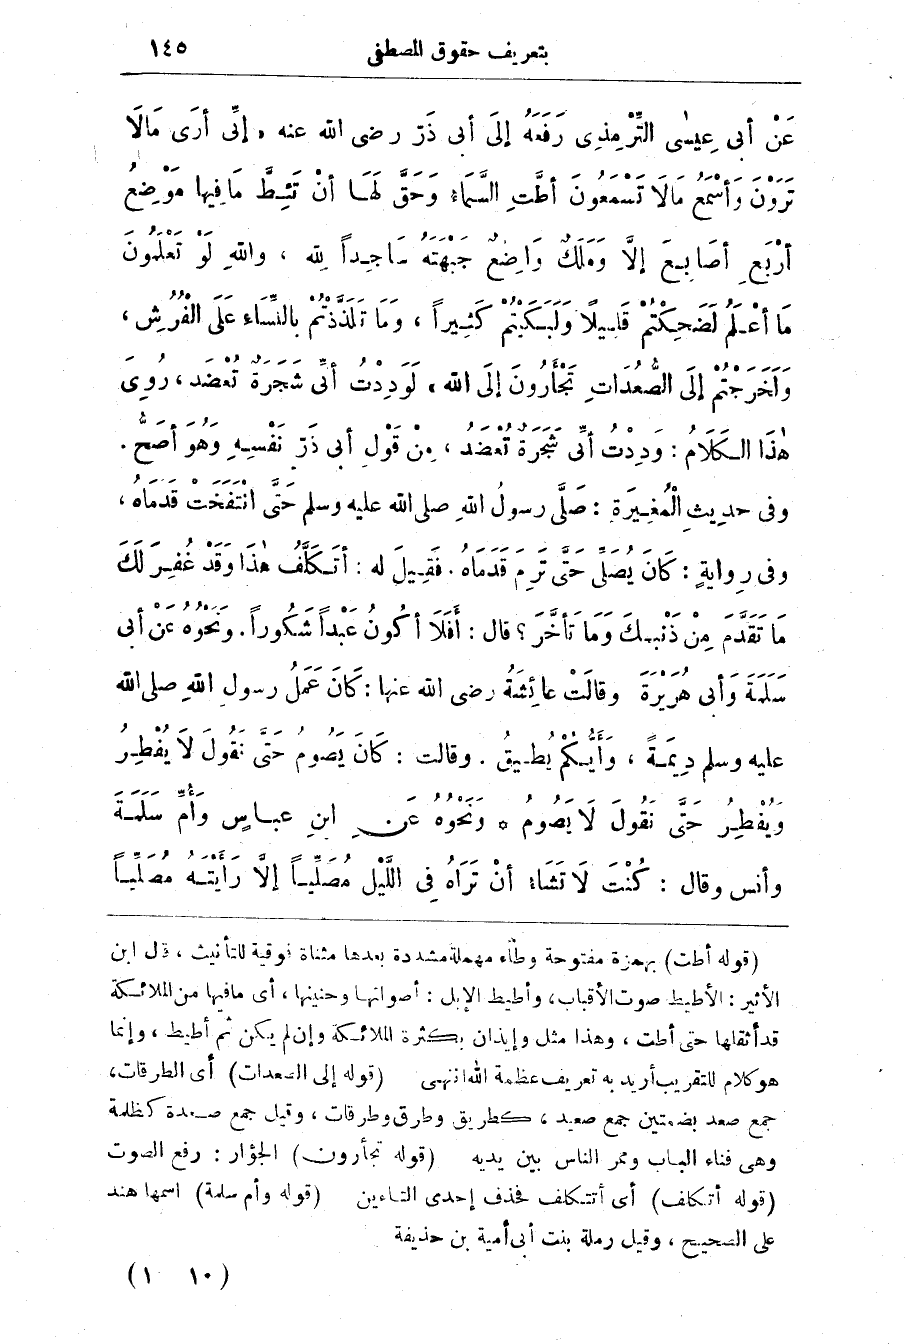 بتعريف حقوق المصطفى ١٤٥
عَنْ أبى عِيسٰى التِّرْمِذِى رَفَعَهُ إلَى أبى ذَرّ رضى الله عنه ، إنِّى أرَى مَالَا
تَرَوْنَ وَأَسْمَعُ مَالَا تَسْمَعُونَ أطَّتِ السَّمَاءُ وَحَقَّ لَهَا أنْ تَئِطَّ مَا فِيها مَوْضِعُ
أرْبَعِ أصَابِعَ إلَّا وَمَلَكٌ وَاضِعٌ جَبْهَتَهُ سَاجِداً لله ، واللهِ لَوْ تَعْلَمُونَ
مَا أعْلَمُ لَضَحِكْتُمْ قَلِيلًا وَلَبَكَيْتُمْ كَثِيراً ، وَمَا تَلَذَّذْتُمْ بالنِّسَاءِ عَلَى الْفُرُشِ ،
وَلَخَرَجْتُمْ إلَى الصُّعُدَاتِ تَجْأَرُونَ إلَى الله ، لَوَدِدْتُ أنِّى شَجَرَةٌ تُعْضَد ، رُوِىَ
هٰذَا الكَلَامُ : وَدِدْتُ أنِّى شَجَرَةٌ تُعْضَدُ ، مِنْ قَوْلِ أبى ذَرّ نَفْسِهِ وَهُوَ أصَحُّ .
وفى حديثِ الْمُغِيرَةِ : صَلَّى رسولُ اللهِ صلى الله عليه وسلم حَتَّى انْتَفَخَتْ قَدَمَاهُ ،
وفى روايةٍ : كَانَ يُصَلِّى حَتَّى تَرِمَ قَدَمَاهُ . فَقِيلَ له : أتَكَلَّفُ هٰذَا وَقَدْ غُفِرَ لَكَ
مَا تَقَدَّمَ مِنْ ذَنْبِكَ وَمَا تَأَخَّرَ ؟ قال : أَفَلَا أكُونُ عَبْداً شَكُوراً . وَنَحْوُهُ عَنْ أبى
سَلَمَةَ وَأبى هُرَيْرَةَ وقالَتْ عائِشَةُ رضى الله عنها : كَانَ عَمَلُ رسولِ اللهِ صلى الله
عليه وسلم دِيمَةً ، وَأَيُّكُمْ يُطيقُ . وقالت : كَانَ يَصُومُ حَتَّى نَقُولَ لَا يُفْطِرُ
وَيُفْطِرُ حَتَّى نَقُولَ لَا يَصُومُ * وَنَحْوُهُ عَنِ ابنِ عباسٍ وَأُمِّ سَلَمَةَ
وأنس وقال : كُنْتَ لَا تَشَاءُ أنْ تَرَاهُ فِى اللَّيْلِ مُصَلِّياً إلَّا رَأَيْتَهُ مُصَلِّياً
(قوله أطت) بهمزة مفتوحة وطاء مهملة مشددة بعدها مثناة فوقية للتأنيث ، قال ابن
الأثير : الأطيط صوت الأقباب ، وأطيط الإبل : أصواتها وحنينها ، أى مافيها من الملائكة
قد أثقلها حتى أطت ، وهذا مثل وإيذان بكثرة الملائكة وإن لم يكن ثم أطيط ، وإنما
هو كلام للتقريب أريد به تعريف عظمة الله انتهى (قوله إلى الصعدات) أى الطرقات ،
جمع صعد بضمتين جمع صعيد ، كطريق وطرق وطرقات ، وقيل جمع صعدة كظلمة
وهى فناء الباب وممر الناس بين يديه (قوله تجأرون) الجؤار : رفع الصوت
(قوله أتكلف) أى أتتكلف فحذف إحدى التاءين (قوله وأم سلمة) اسمها هند
على الصحيح ، وقيل رملة بنت أبى أمية بن حذيفة
(١٠ ١)